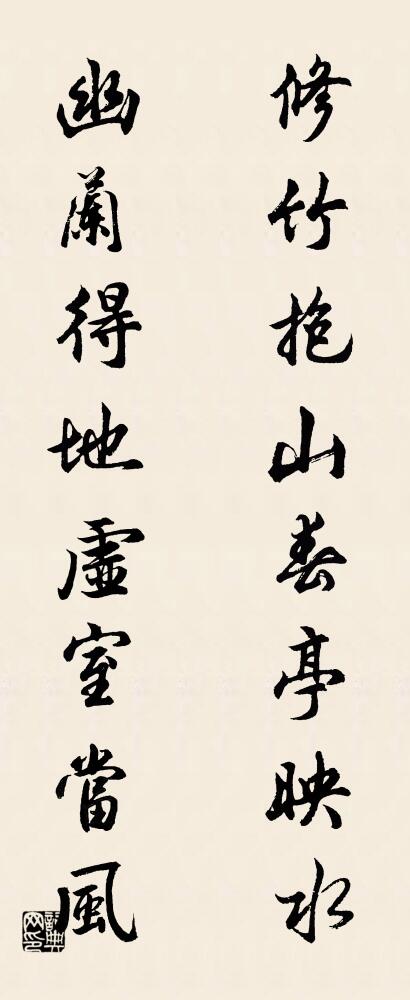 修竹抱山春亭映水
幽蘭得地虛室當風